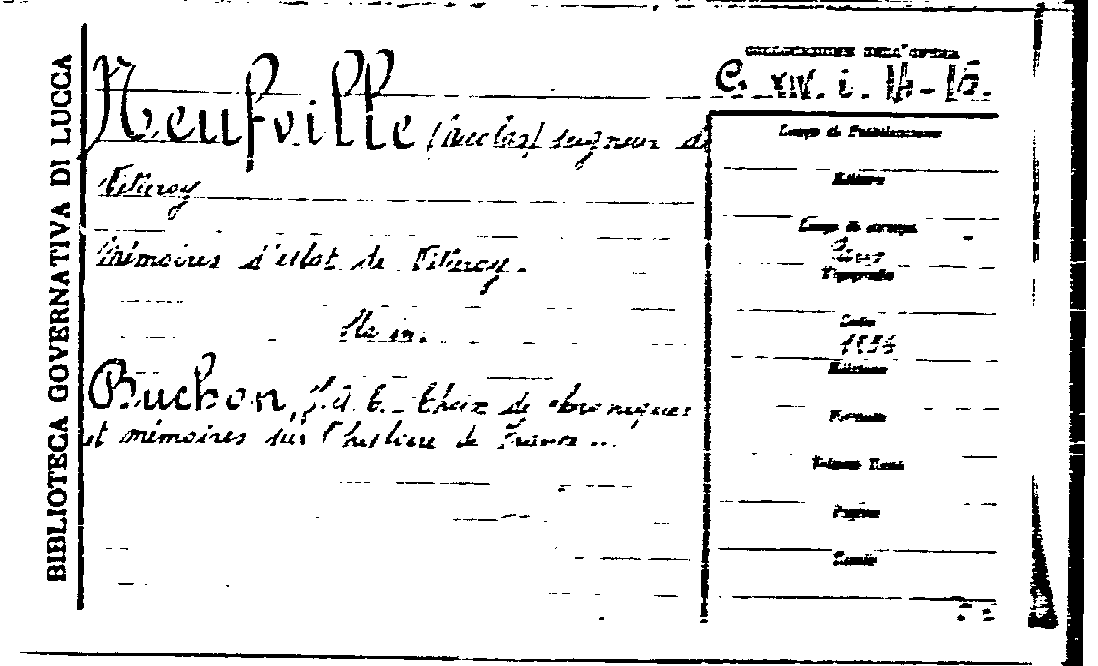 BIBLIOTECA GOVERNATIVA DI LUCCA
COLLOCAZIONE DELL'OPERA
C. XIV. i. 16-18.
Neufville (Nicolas) seigneur de
Villeroy
Mémoires d'estat de Villeroy.
Sta in.
Buchon, J. A. C. - Choix de chroniques
et mémoires sur l'histoire de France...
Luogo di Pubblicazione
Editore
Luogo di stampa
Tipografia
Data
Edizione
Formato
Volumi
Pagine